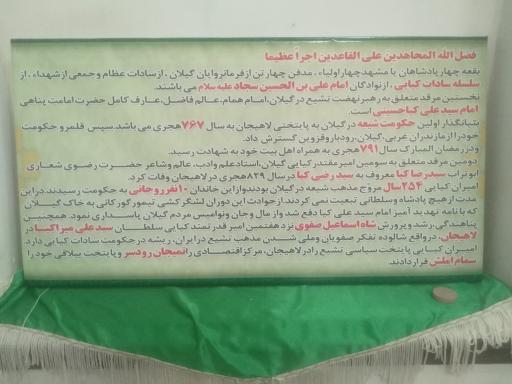 فضل الله المجاهدین علی القاعدین اجراً عظیما
بقعه چهار پادشاهان یا مشهد چهار اولیاء ، مدفن چهار تن از فرمانروایان گیلان ، از سادات عظام و جمعی از شهداء ، از
سلسله سادات کیایی ، از نوادگان امام علی بن الحسین سجاد علیه سلام می باشند.
نخستین مرقد متعلق به رهبر نهضت تشیع در گیلان، امام همام، عالم فاضل، عارف کامل حضرت امامت پناهی
امام سید علی کیا حسینی است.
بنیانگذار اولین حکومت شیعه در گیلان به پایتختی لاهیجان به سال ۷۶۷ هجری می باشد. سپس قلمرو حکومت
خود را از مازندران غربی، گیلان، رودبار و قزوین گسترش داد.
و در رمضان المبارک سال ۷۹۱ هجری به همراه اهل بیت خود به شهادت رسید.
دومین مرقد متعلق به سومین امیر مقتدر کیایی گیلان، استاد علم و ادب، عالم و شاعر حضرت رضوی شعاری
ابوتراب سید رضا کیا معروف به سید رضی کیا در سال ۸۲۹ هجری در لاهیجان وفات کرد.
امیران کیایی ۲۵۴ سال مروج مذهب شیعه در گیلان بودند و از این خاندان ۱۰ نفر روحانی به حکومت رسیدند. در این
مدت از هیچ پادشاه و سلطانی تبعیت نمی کردند. از حوادث این دوران لشگر کشی تیمور گورکانی به خاک گیلان
که با نامه تهدید آمیز امام سید علی کیا دفع شد و از مال و جان و نوامیس مردم گیلان پاسداری نمود. همچنین
پناهندگی، رشد و پرورش شاه اسماعیل صفوی نزد هفتمین امیر قدرتمند کیایی سلطان سید علی میرزا کیا در
لاهیجان، در واقع شالوده تفکر صفویان و ملی شدن مذهب تشیع در ایران، ریشه در حکومت سادات کیایی دارد.
امیران کیایی پایتخت سیاسی تشیع را در لاهیجان، مرکز اقتصادی را تمیجان رودسر و پایتخت ییلاقی خود را
سمام املش قرار دادند.